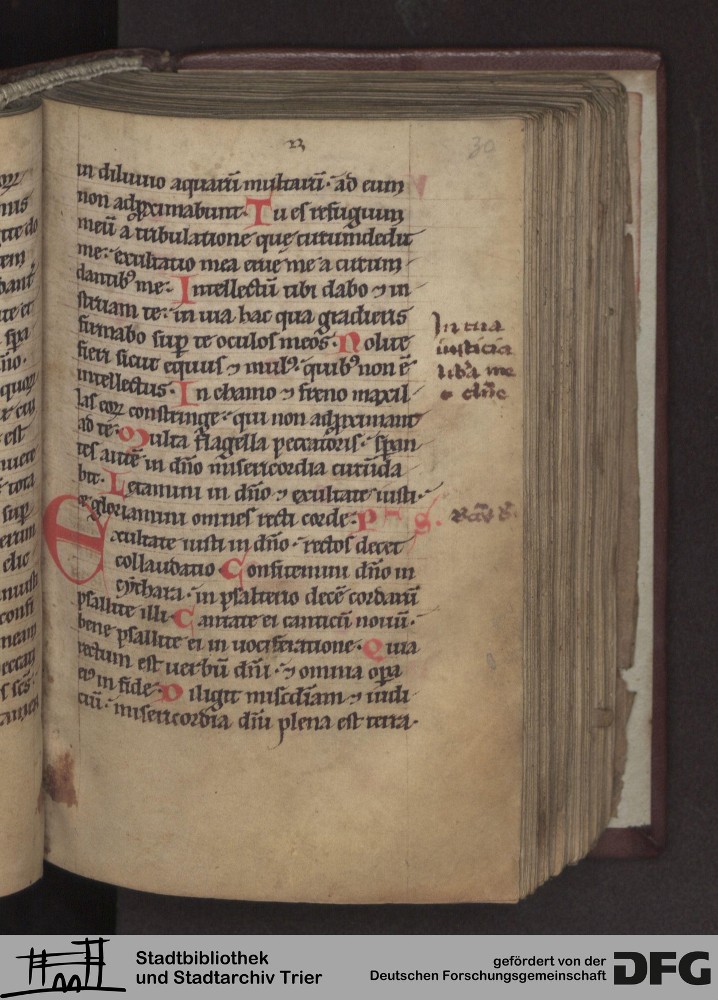 23
30
in diluuio aquarū multarū· ad eum
non adp̱ximabunt· Tu es refugium
meū a tribulatione que circumdedit
me· exultatio mea erue me a circum
dantibꝰ me· Intellectū tibi dabo ⁊ in
struam te· in uia hac qua gradieris
firmabo sup̱ te oculos meos· Nolite
fieri sicut equus ⁊ mulꝰ· quibꝰ non ē
intellectus· In chamo ⁊ freno maxil
las eoꝝ constringe· qui non adp̱ximant
ad te· Multa flagella peccatoris· sp̱an
tes autē in dño misericordia circūda
bit· Letamini in dño ⁊ exultate iusti·
et gloriamini omnes recti corde· P S·
Exultate iusti in dño· rectos decet
collaudatio· Confitemini dño in
cythara· in psalterio decē cordarū
psallite illi· Cantate ei canticū nouū·
bene psallite ei in uociferatione· Quia
rectum est uerbū dñi· ⁊ omnia op̱a
eiꝰ in fide· Diligit miscdīam ⁊ iudi
ciū· misericordia dñi plena est terra·
In tua
iusticia
libᵃ me
dñe
Stadtbibliothek
und Stadtarchiv Trier
gefördert von der
Deutschen Forschungsgemeinschaft
DFG